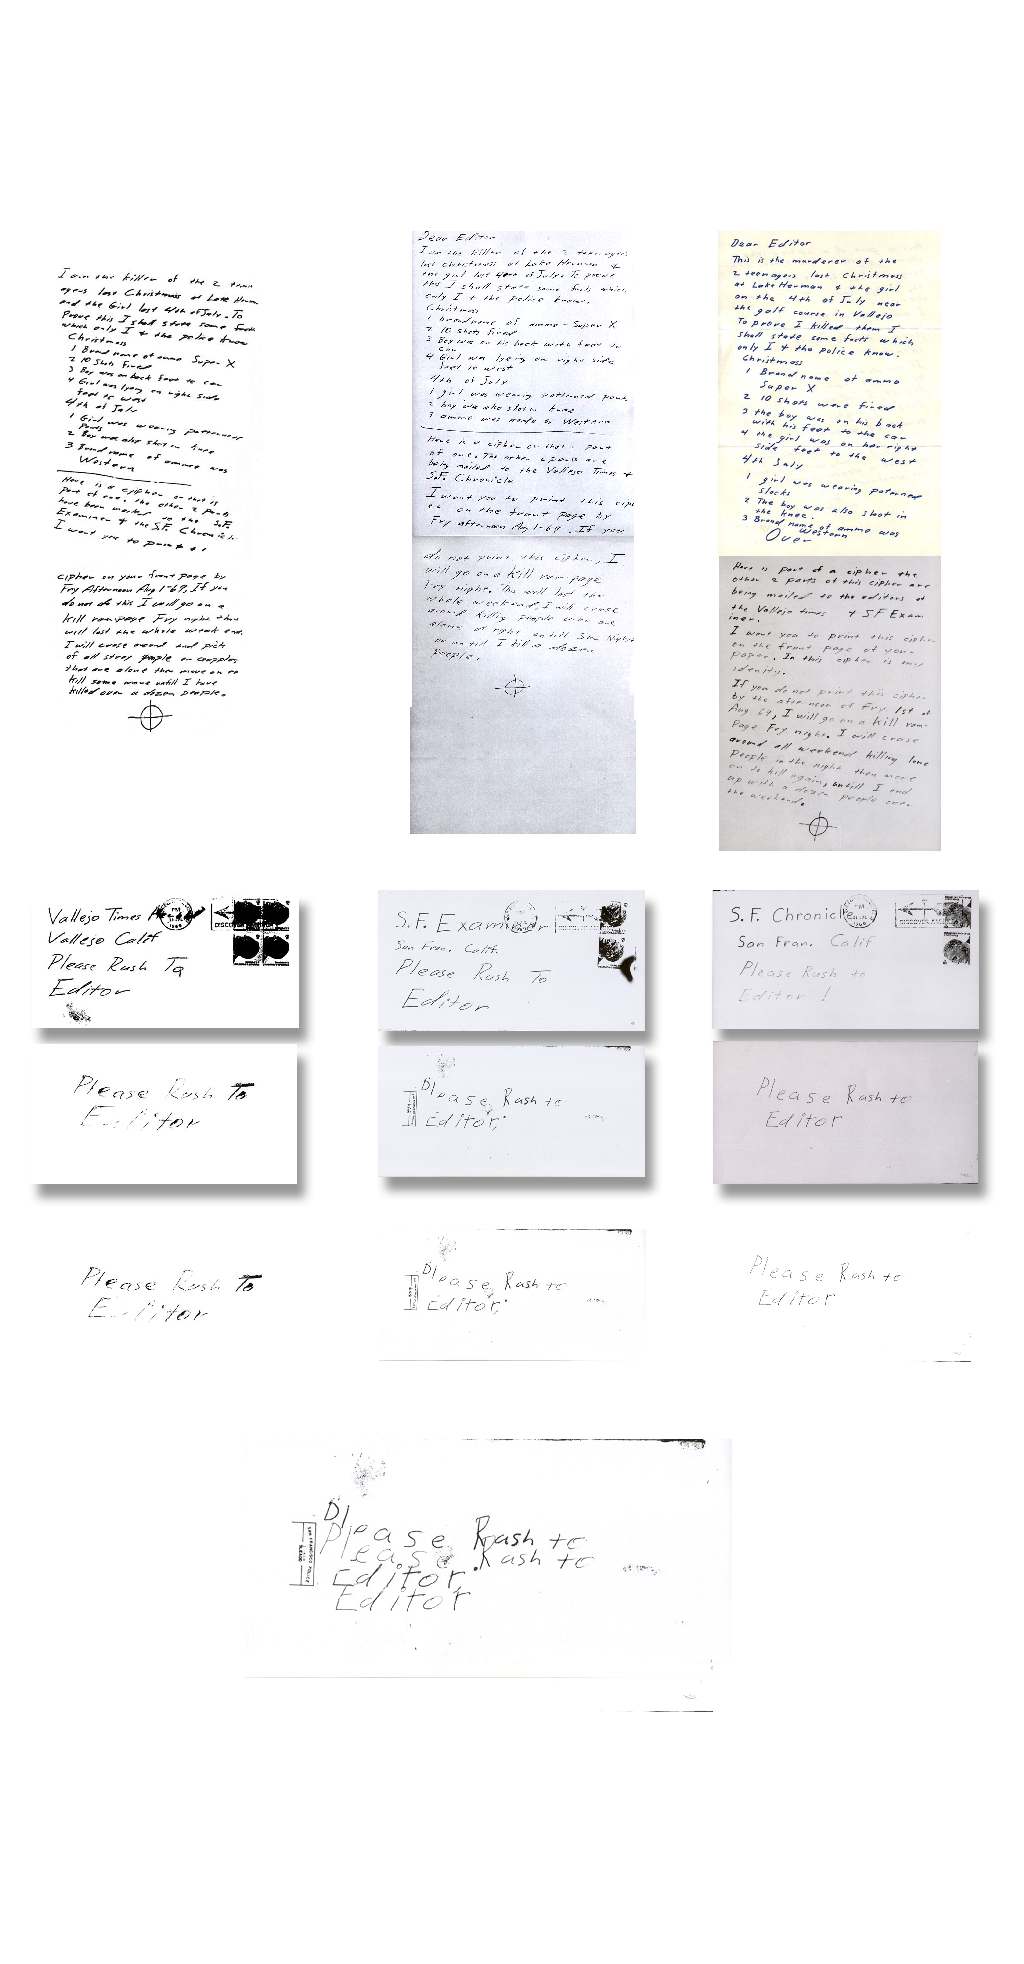 I am the killer of the 2 teen
agers last Christmass at Lake Herman
and the Girl last 4th of July. To
Prove this I shall state some facts
which only I + the police know
Christmass
1 Brand name of ammo Super X
2 10 Shots fired
3 Boy was on back feet to car
4 Girl was lyeing on right side
feet to west
4th of July
1 Girl was wearing patterned
Pants
2 Boy was also shot in knee
3 Brand name of ammo was
Western
Here is a cyipher or that is
part of one. the other 2 parts
have been mailed to the S.F.
Examiner + the S.F. Chronicle
I want you to print this
cipher on your front page by
Fry Afternoon Aug 1-69, If you
do not do this I will go on a
kill rampage Fry night that
will last the whole week end.
I will cruse around and pick
of all stray people or coupples
that are alone then move on to
kill some more untill I have
killed over a dozen people.
Dear Editor
I am the killer of the 2 teenagers
last christmass at Lake Herman +
the girl last 4th of July. To prove
this I shall state some facts which
only I + the police know.
Christmass
1 brand name of ammo - Super X
2 10 shots fired
3 Boy was on his back with feet to
car
4 Girl was lyeing on right side
feet to west
4th of July
1 girl was wearing patterned pants
2 boy was also shot in knee
3 ammo was made by Western
Here is a cipher or that is part
of one. The other 2 parts are
being mailed to the Vallejo Times +
S.F. Chronicle
I want you to print this cipher
on the front page by
Fry afternoon Aug 1-69. If you
do not print this cipher, I
will go on a kill rampage
Fry night. This will last the
whole weekend, I will cruse
around killing people who are
alone at night untill Sun Night
or untill I kill a dozen
people.
Dear Editor
This is the murderer of the
2 teenagers last Christmass
at Lake Herman + the girl
on the 4th of July near
the golf course in Vallejo
To prove I killed them I
shall state some facts which
only I + the police know.
Christmass
1 Brand name of ammo
Super X
2 10 shots were fired
3 the boy was on his back
with his feet to the car
4 the girl was on her right
side feet to the west
4th July
1 girl was wearing paterned
slacks
2 The boy was also shot in
the knee.
3 Brand name of ammo was
Western
Over
Here is part of a cipher the
other 2 parts of this cipher are
being mailed to the editors of
the Vallejo times + SF Exam
iner.
I want you to print this cipher
on the front page of your
paper. In this cipher is my
idenity.
If you do not print this cipher
by the afternoon of Fry. 1st of
Aug 69, I will go on a kill ram-
Page Fry. night. I will cruse
around all weekend killing lone
people in the night then move
on to kill again, untill I end
up with a dozen people over
the weekend.
Vallejo Times
Vallejo Calif
Please Rush To
Editor
S.F. Examiner
San Fran. Calif.
Please Rush To
Editor
S.F. Chronicle
San Fran. Calif
Please Rush to
Editor !
Please Rush To
Editor
Please Rush to
Editor
Please Rush to
Editor
Please Rush To
Editor
Please Rush to
Editor
Please Rush to
Editor
Please Rush to
Please Rush to
Editor
Editor